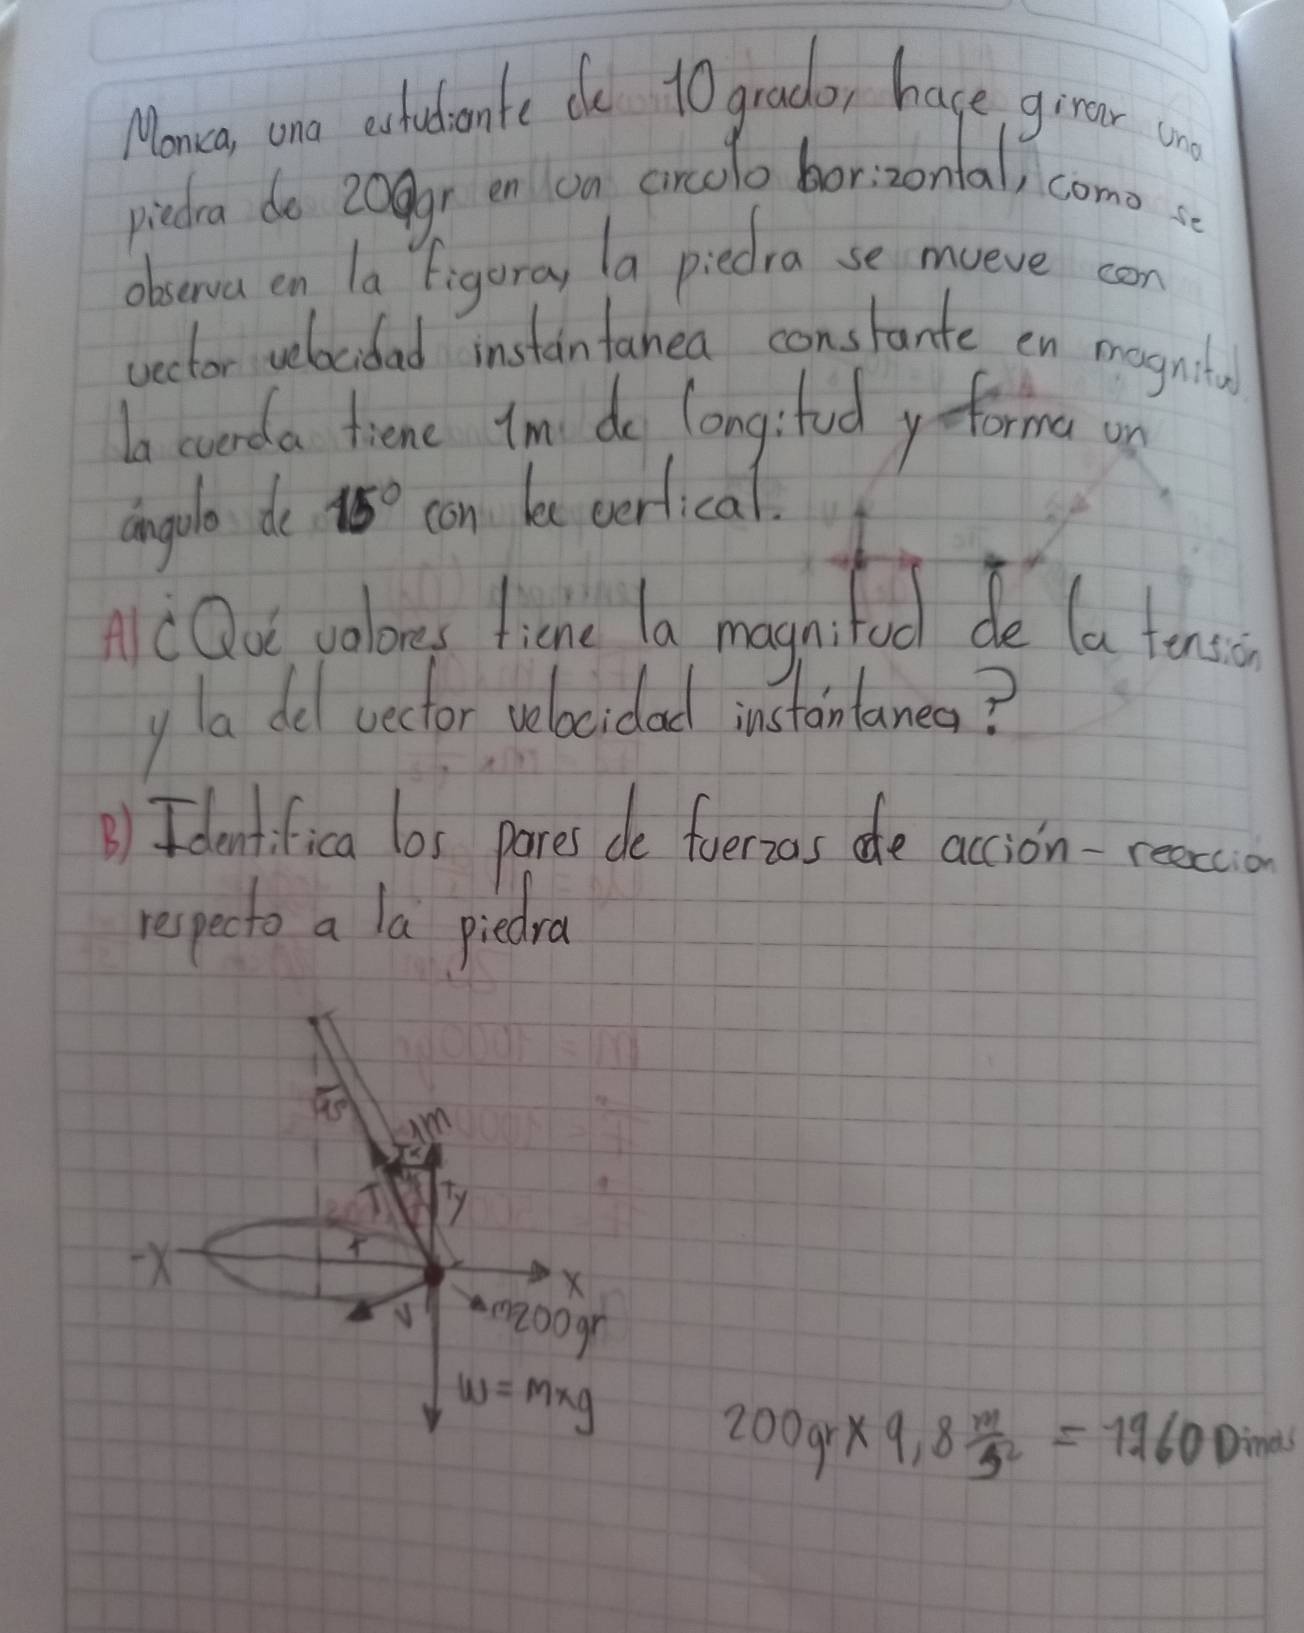 Monica, una estudiante de 10 grado, hace girar una
piedra de 200gr en un circulo horizontal, como se
observa en la figura, la piedra se mueve con
vector velocidad instántanea constante en magnitud
la cuerda tiene 1m de longitud y forma un
ángulo de 15° con la vertical.
A) ¿Qué valores tiene la magnitud de la tensión
y la del vector velocidad instántanea?
B) Identifica los pares de fuerzas de acción - reacción
respecto a la piedra
15°
1m
T
Ty
r
-X
X
V
m200gr
W = mxg
200gr x 9,8 m/s² = 1960 Dinas